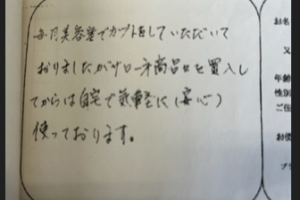 毎月美容室でカットをしていただいて
おりましたがサロー才商品を買入し
てからは自宅で気軽に(安心)
使っております。
お名
又
年齢
性別
ご住
お使